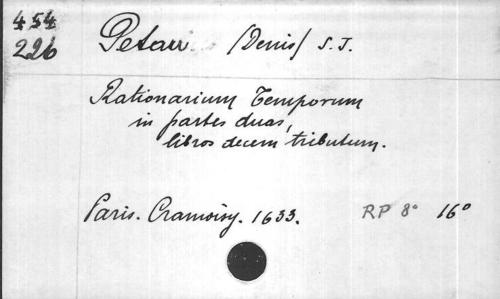 454
226
Petau (Denis) S.J.
Rationarium Temporum
in partes duas,
libros decem tributum.
Paris. Cramoisy. 1633. RP 8° 16°